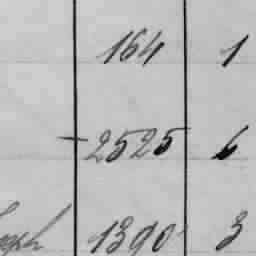 164 1
2525 6
1390 3